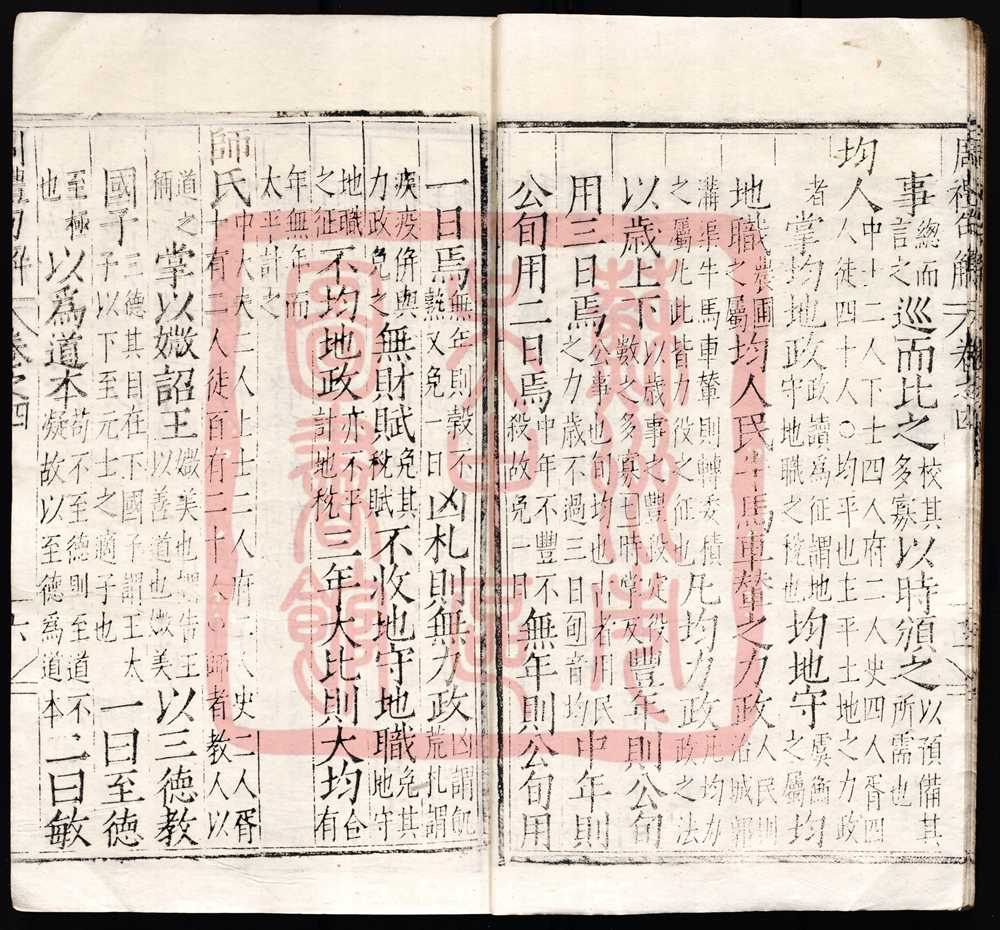 周禮句解 卷之四
事總而言之巡而比之校其多寡以時頒之以預備其所需也
均人中士二人下士四人府二人史四人胥四人徒四十人○均平也主平土地之力政
者掌均地政政讀爲征謂地守地職之稅也均地守虞衡之屬均
地職農圃之屬均人民牛馬車輦之力政人民則治城郭
溝渠牛馬車輦則轉委積之屬凡此皆力役之征也凡均力政凡均力政之法
以歲上下以歲事之豐殺定役數之多寡豐年則公旬
用三日焉公事也旬均也用民之力歲不過三日旬音均中年則
公旬用二日焉中年不豐不殺故免一日無年則公旬用
一日焉無年則穀不熟又免一日凶札則無力政凶謂飢荒札謂
疾疫併與力政免之無財賦免其稅賦不收地守地職免其地守
地職之征不均地政亦不平計地稅三年大比則大均合有
年無年而太平計之
師氏中大夫二人上士二人府二人史二人胥十有二人徒百有二十人○師者教人以
道之稱掌以媺詔王媺美也詔告王以善道也媺美以三德教
國子三德其目在下國子謂王太子以下至元士之適子也一曰至德
至極也以爲道本苟不至德則至道不凝故以至德爲道本二曰敏
周禮句解 卷之四 六
蘇州市
圖書館